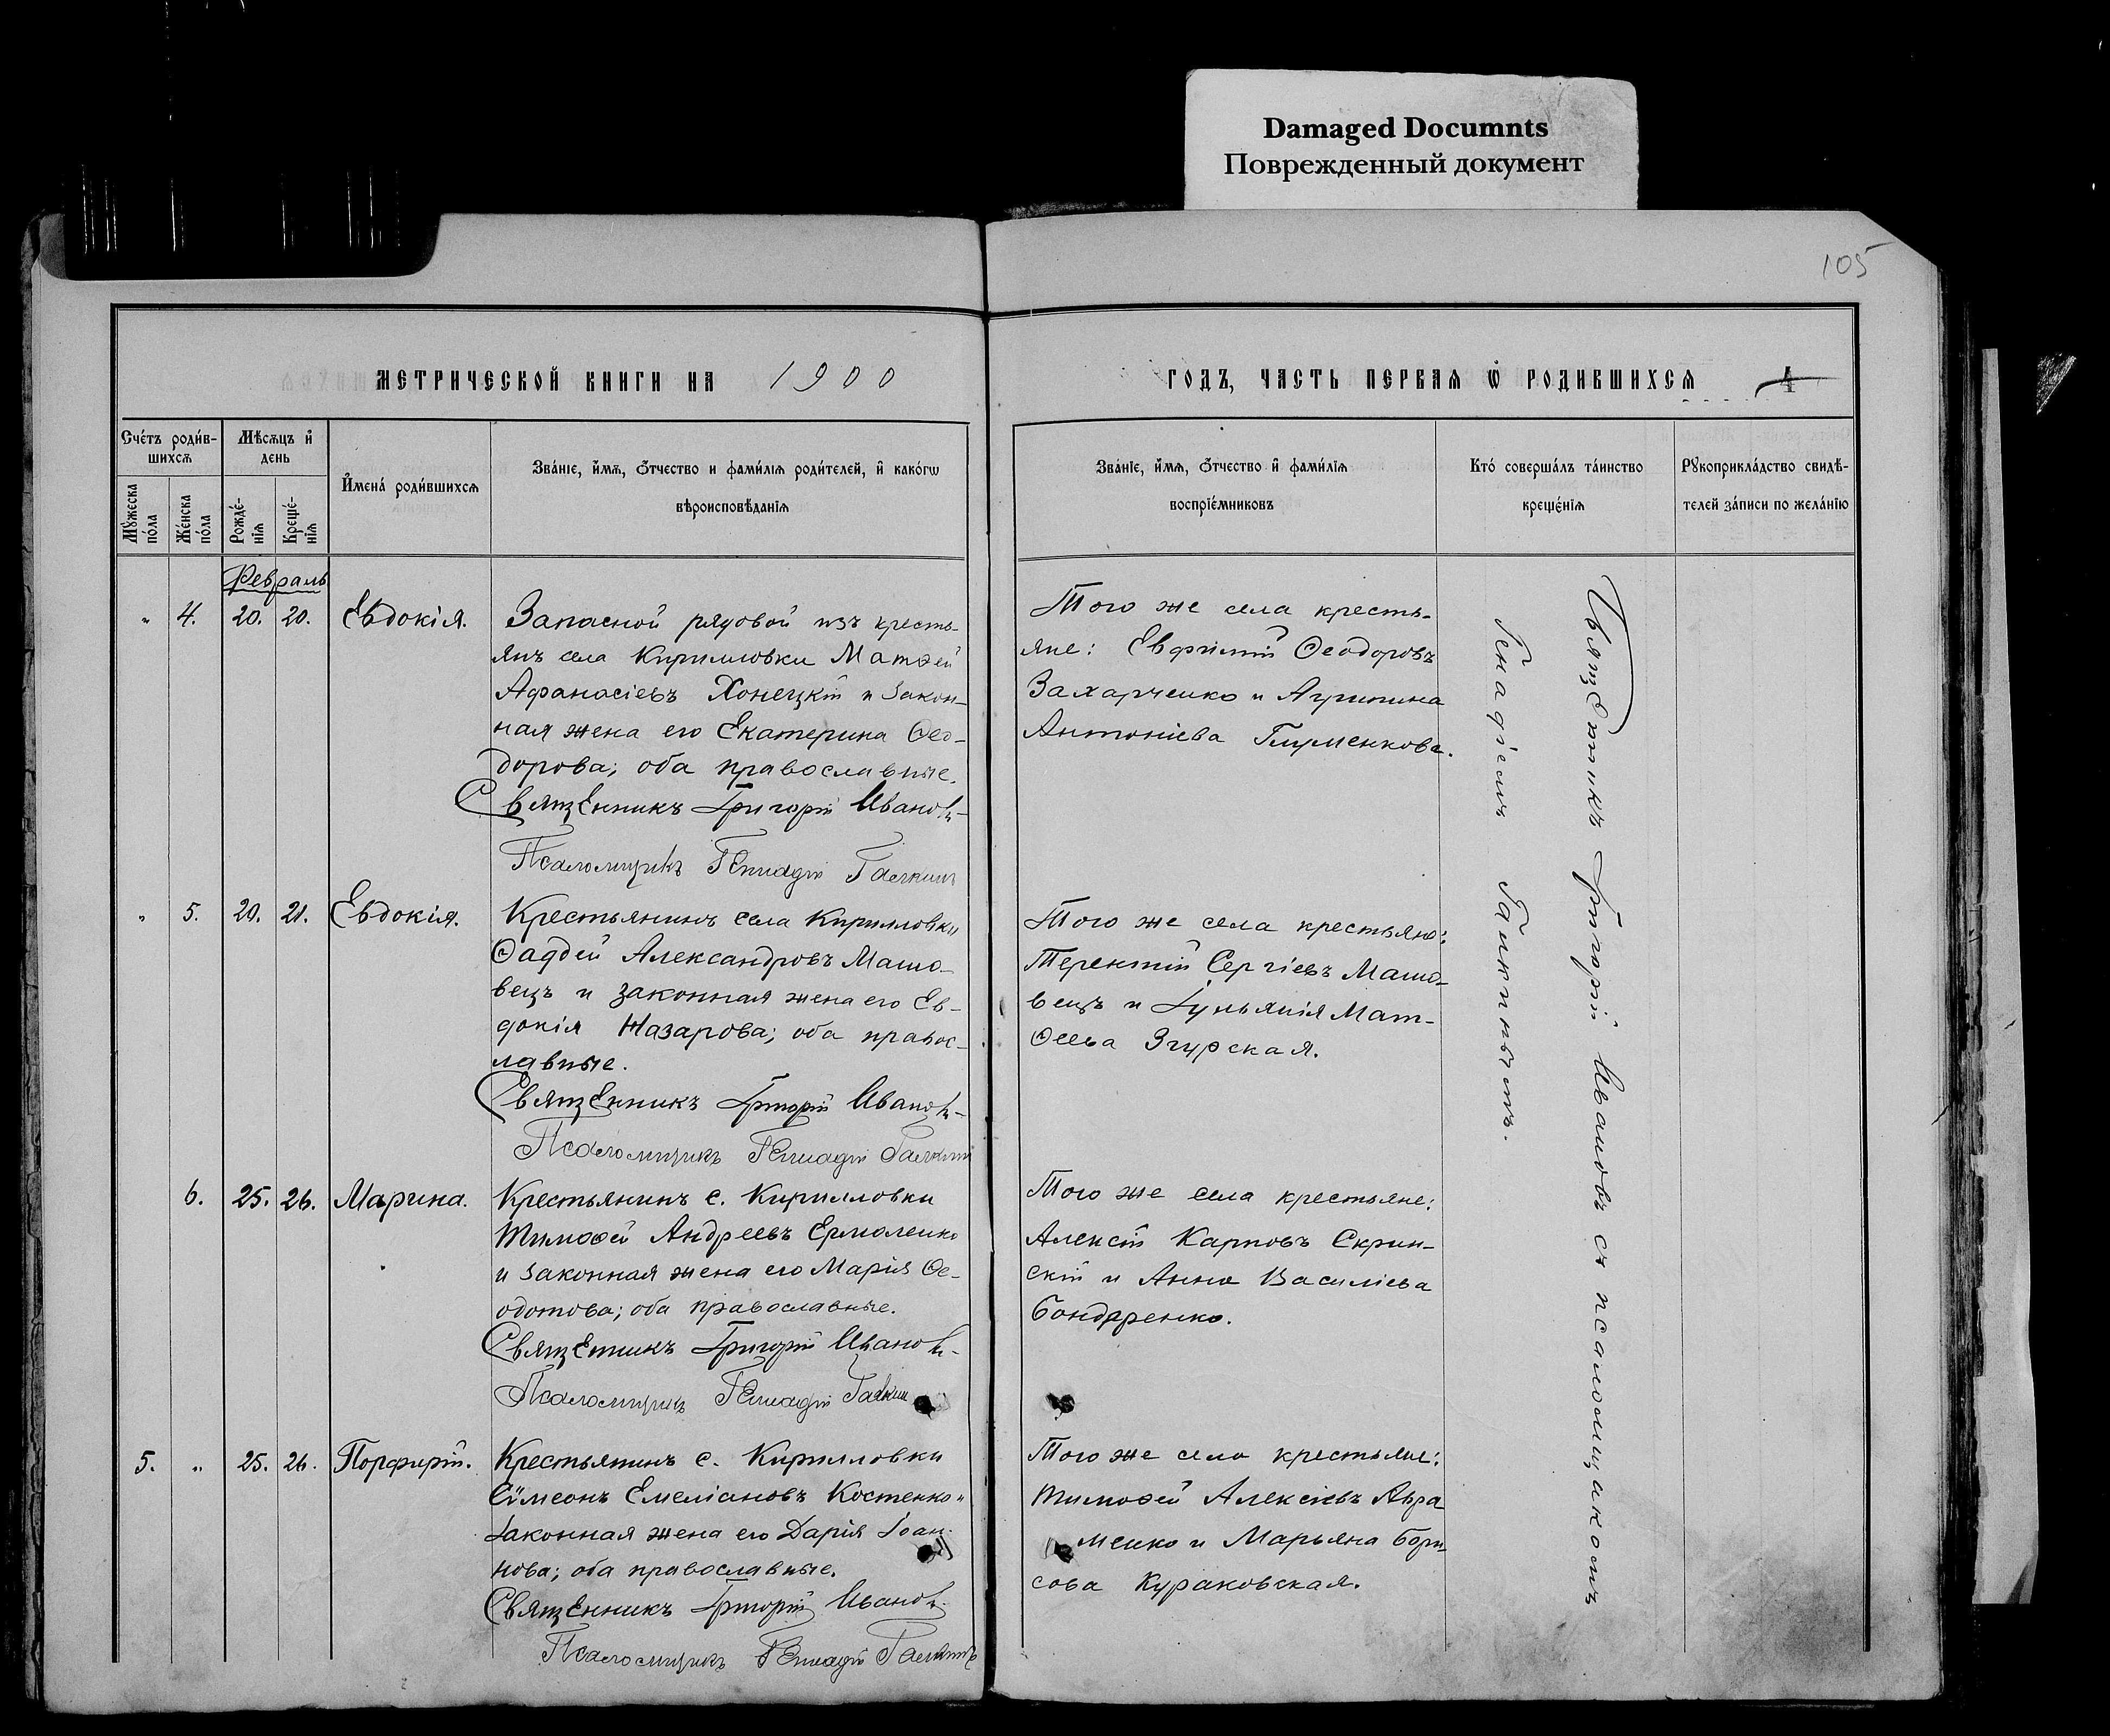 Damaged Documnts
Поврежденный документ
105
МЕТРИЧЕСКОЙ КНИГИ НА 1900
ГОДЪ, ЧАСТЬ ПЕРВАЯ Ѡ РОДИВШИХСЯ 4
Счётъ роди́в-
шихсѧ
Мѣсѧцъ и҆
день
И҆мена́ роди́вшихсѧ
Зва́нїе, и҆́мѧ, ѻ҆́тчество и фами́лїѧ роди́телей, и҆ како́гѡ
вѣроисповѣ́данїѧ
Мꙋ́жеска
по́ла
Же́нска
по́ла
Рожде́-
нїѧ
Креще́-
нїѧ
Зва́нїе, и҆́мѧ, ѻ҆́тчество и҆ фами́лїѧ
воспрїе́мниковъ
Кто́ соверша́лъ та́инство
креще́нїѧ
Рꙋкоприкла́дство свидѣ́-
телей за́писи по жела́нїю
Февраль
" 4. 20. 20. Евдокія.
Запасной рядовой изъ кресть-
янъ села Кирилловки Матѳей
Афанасіевъ Хонецкій и закон-
ная жена его Екатерина Ѳео-
дорова; оба православные.
Священникъ Григорій Ивановъ
Псаломщикъ Генадій Галкинъ
Того же села кресть-
яне: Евфимій Ѳеодоровъ
Захарченко и Агрипина
Антоніева
" 5. 20. 21. Евдокія.
Крестьянинъ села Кирилловки
Ѳаддей Александровъ Машо-
вецъ и законная жена его Ев-
докія Назарова; оба правос-
лавные.
Священникъ Григорій Ивановъ
Псаломщикъ Генадій Галкинъ
Того же села крестьяне:
Терентій Сергіевъ Машо-
вецъ и Іульянія Мат-
ѳеева Згурская.
6. 25. 26. Марина.
Крестьянинъ с. Кирилловки
Тимоѳей Андреевъ Ермоленко
и законная жена его Марія Ѳе-
одотова; оба православные.
Священникъ Григорій Ивановъ
Псаломщикъ Генадій Галкин
Того же села крестьяне:
Алексій Карповъ Скрин-
скій и Анна Василіева
Бондаренко.
5. " 25. 26. Порфирій.
Крестьянинъ с. Кирилловки
Сѵмеонъ Емеліановъ Костенко и
законная жена его Дарія Іоан-
нова; оба православные.
Священникъ Григорій Ивановъ
Псаломщикъ Генадій Галкинъ
Того же села крестьяне:
Тимоѳей Алексіевъ Авра
менко и Марьяна Бори-
сова Кураковская.
Священникъ Григорій Ивановъ съ псаломщикомъ
Генадіемъ Галкинымъ.